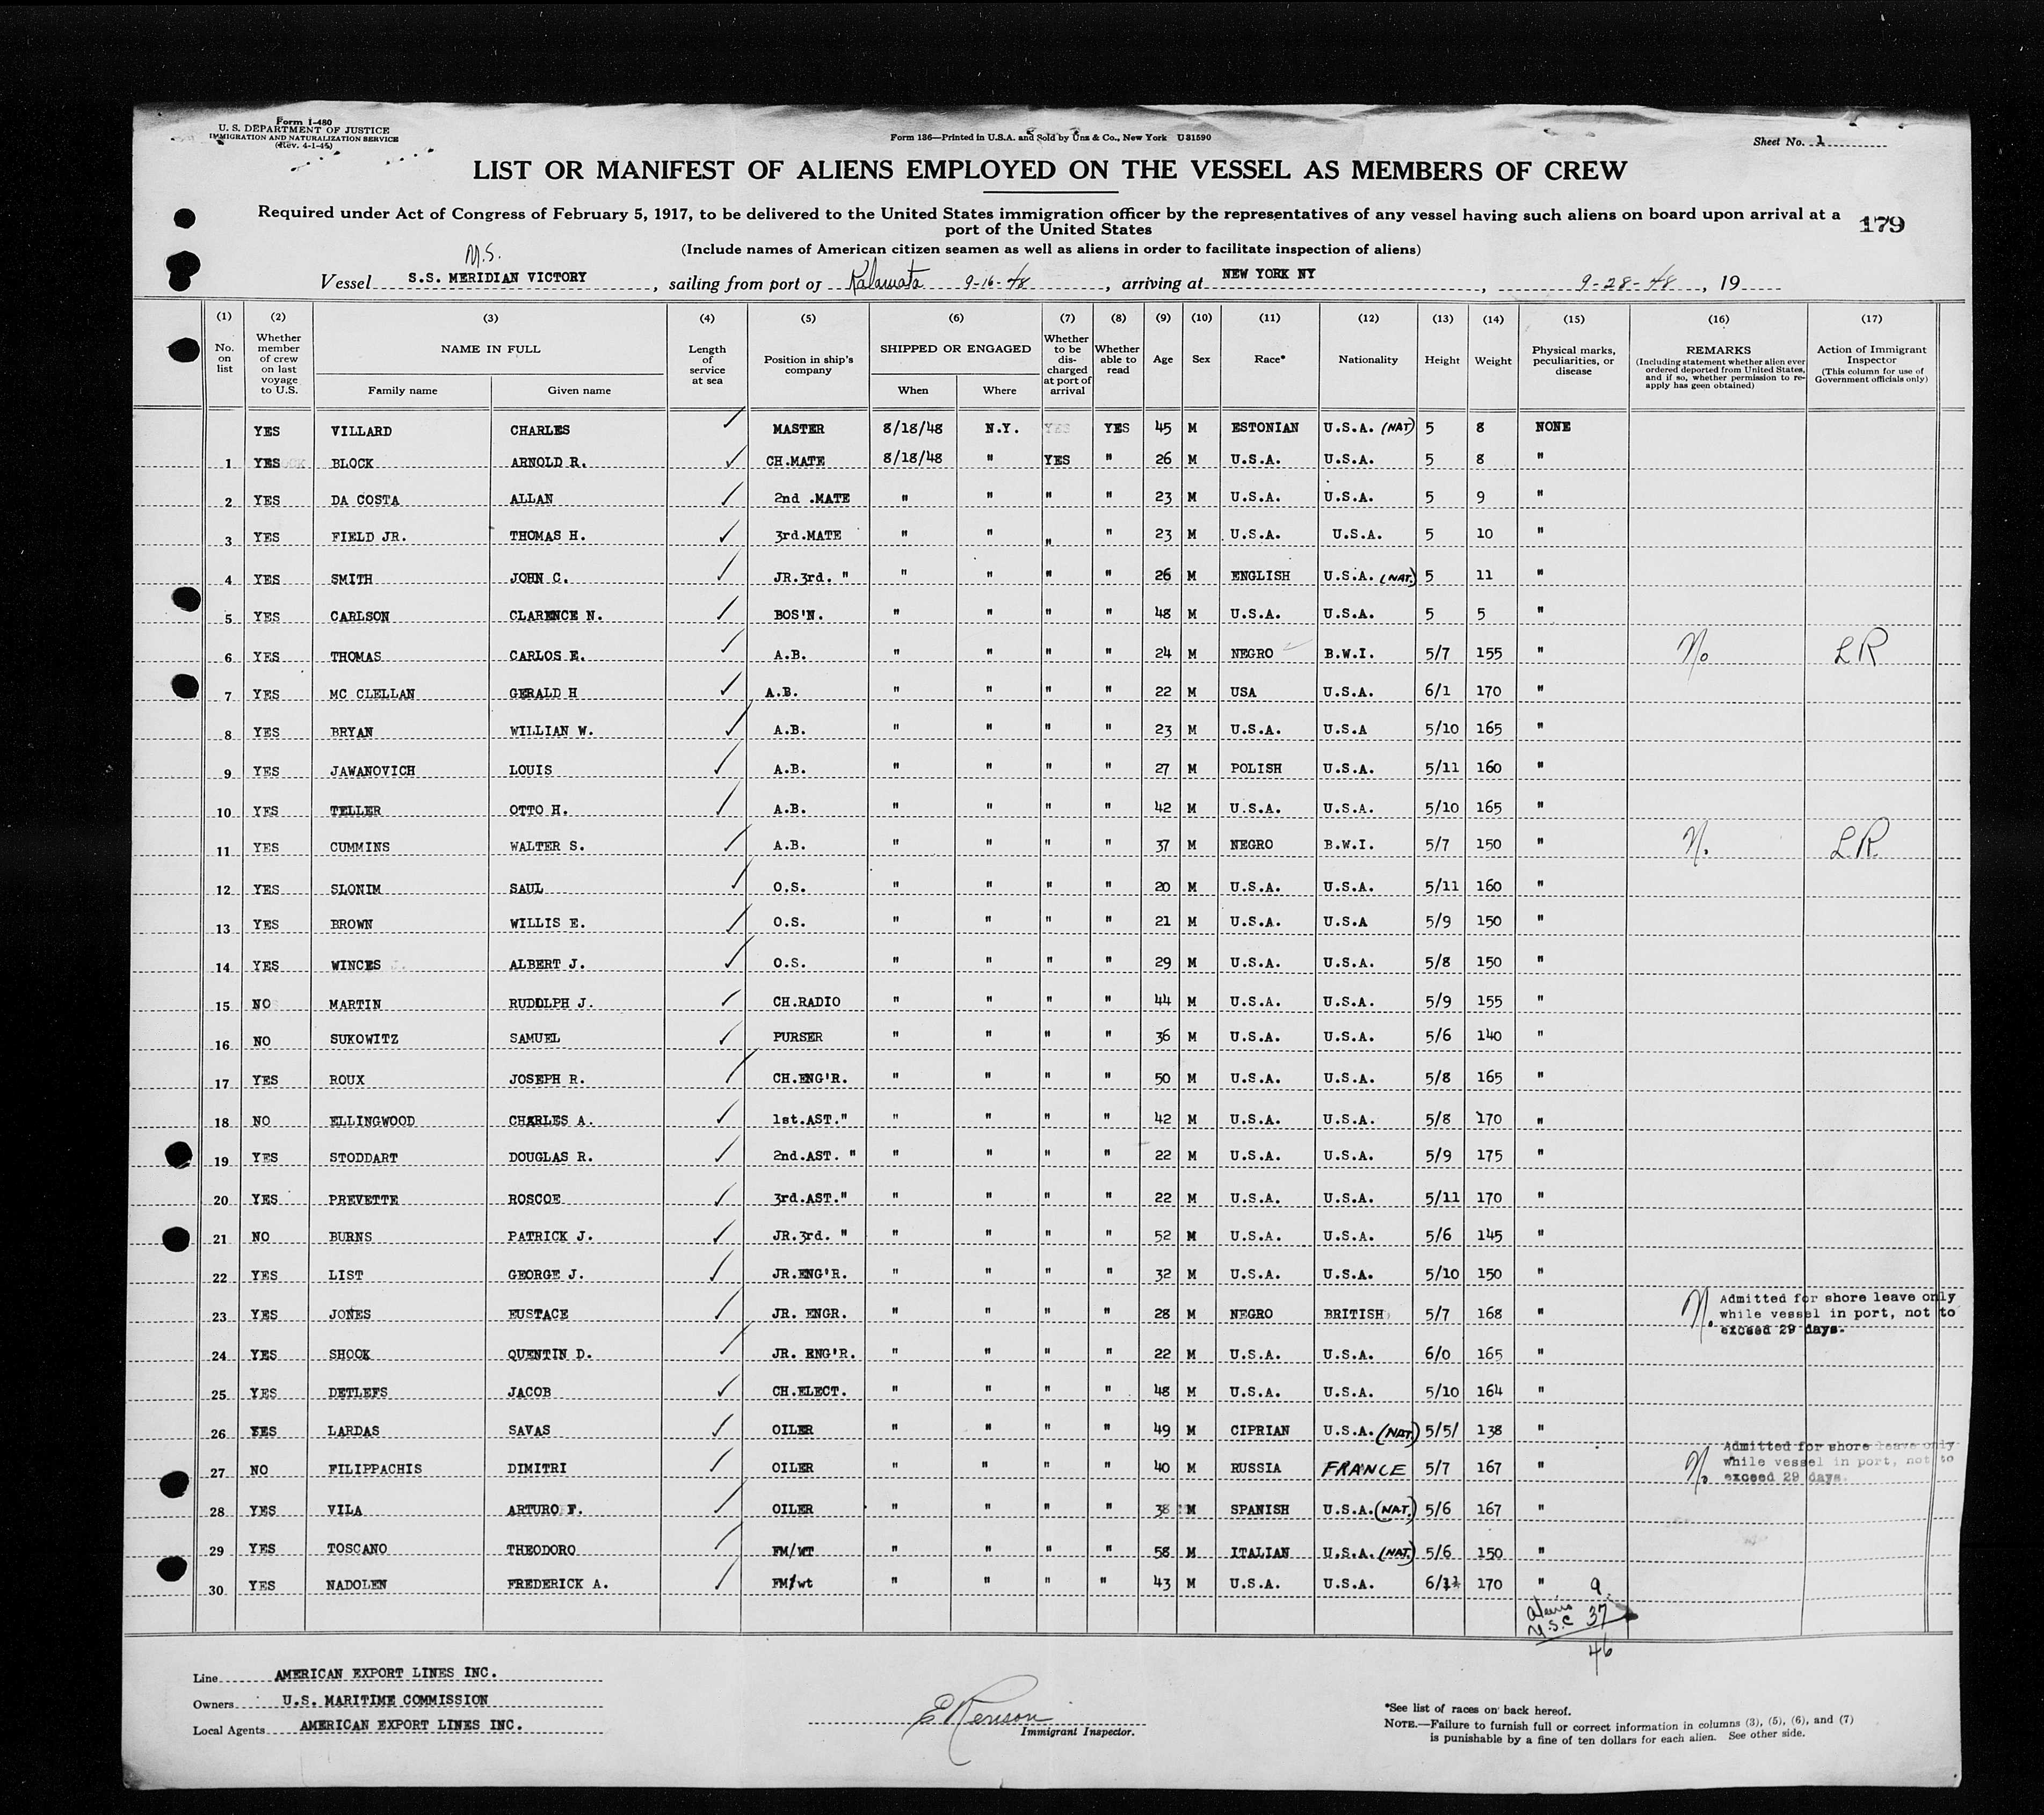 Form I-480
U. S. DEPARTMENT OF JUSTICE
IMMIGRATION AND NATURALIZATION SERVICE
(Rev. 4-1-45)
Form 136—Printed in U.S.A. and Sold by Unz & Co., New York U31590
Sheet No. 1
LIST OR MANIFEST OF ALIENS EMPLOYED ON THE VESSEL AS MEMBERS OF CREW
Required under Act of Congress of February 5, 1917, to be delivered to the United States immigration officer by the representatives of any vessel having such aliens on board upon arrival at a
port of the United States
179
(Include names of American citizen seamen as well as aliens in order to facilitate inspection of aliens)
M.S.
Vessel S.S. MERIDIAN VICTORY, sailing from port of Kalamata 9-16-48, arriving at NEW YORK NY, 9-28-48, 19
(1) (2) (3) (4) (5) (6) (7) (8) (9) (10) (11) (12) (13) (14) (15) (16) (17)
No. on list
Whether member of crew on last voyage to U.S.
NAME IN FULL
Family name
Given name
Length of service at sea
Position in ship's company
SHIPPED OR ENGAGED
When
Where
Whether to be discharged at port of arrival
Whether able to read
Age
Sex
Race*
Nationality
Height
Weight
Physical marks, peculiarities, or disease
REMARKS
(Including statement whether alien ever ordered deported from United States, and if so, whether permission to re-apply has geen obtained)
Action of Immigrant Inspector
(This column for use of Government officials only)
YES VILLARD CHARLES ✓ MASTER 8/18/48 N.Y. YES YES 45 M ESTONIAN U.S.A. (NAT) 5 8 NONE
1 YES BLOCK ARNOLD R. ✓ CH.MATE 8/18/48 " YES " 26 M U.S.A. U.S.A. 5 8 "
2 YES DA COSTA ALLAN ✓ 2nd .MATE " " " " 23 M U.S.A. U.S.A. 5 9 "
3 YES FIELD JR. THOMAS H. ✓ 3rd.MATE " " " " 23 M U.S.A. U.S.A. 5 10 "
4 YES SMITH JOHN C. ✓ JR.3rd. " " " " " 26 M ENGLISH U.S.A. (NAT.) 5 11 "
5 YES CARLSON CLARENCE N. ✓ BOS'N. " " " " 48 M U.S.A. U.S.A. 5 5 "
6 YES THOMAS CARLOS E. ✓ A.B. " " " " 24 M NEGRO B.W.I. 5/7 155 " No LR
7 YES MC CLELLAN GERALD H ✓ A.B. " " " " 22 M USA U.S.A. 6/1 170 "
8 YES BRYAN WILLIAN W. ✓ A.B. " " " " 23 M U.S.A. U.S.A 5/10 165 "
9 YES JAWANOVICH LOUIS ✓ A.B. " " " " 27 M POLISH U.S.A. 5/11 160 "
10 YES TELLER OTTO H. ✓ A.B. " " " " 42 M U.S.A. U.S.A. 5/10 165 "
11 YES CUMMINS WALTER S. ✓ A.B. " " " " 37 M NEGRO B.W.I. 5/7 150 " No LR
12 YES SLONIM SAUL ✓ O.S. " " " " 20 M U.S.A. U.S.A. 5/11 160 "
13 YES BROWN WILLIS E. ✓ O.S. " " " " 21 M U.S.A. U.S.A 5/9 150 "
14 YES WINCES ALBERT J. ✓ O.S. " " " " 29 M U.S.A. U.S.A. 5/8 150 "
15 NO MARTIN RUDOLPH J. ✓ CH.RADIO " " " " 44 M U.S.A. U.S.A. 5/9 155 "
16 NO SUKOWITZ SAMUEL ✓ PURSER " " " " 36 M U.S.A. U.S.A. 5/6 140 "
17 YES ROUX JOSEPH R. ✓ CH.ENG'R. " " " " 50 M U.S.A. U.S.A. 5/8 165 "
18 NO ELLINGWOOD CHARLES A. ✓ 1st.AST." " " " " 42 M U.S.A. U.S.A. 5/8 170 "
19 YES STODDART DOUGLAS R. ✓ 2nd.AST. " " " " " 22 M U.S.A. U.S.A. 5/9 175 "
20 YES PREVETTE ROSCOE ✓ 3rd.AST." " " " " 22 M U.S.A. U.S.A. 5/11 170 "
21 NO BURNS PATRICK J. ✓ JR.3rd. " " " " " 52 M U.S.A. U.S.A. 5/6 145 "
22 YES LIST GEORGE J. ✓ JR.ENG'R. " " " " 32 M U.S.A. U.S.A. 5/10 150 "
23 YES JONES EUSTACE ✓ JR. ENGR. " " " " 28 M NEGRO BRITISH 5/7 168 " No Admitted for shore leave only while vessel in port, not to exceed 29 days.
24 YES SHOOK QUENTIN D. ✓ JR. ENG'R. " " " " 22 M U.S.A. U.S.A. 6/0 165 "
25 YES DETLEFS JACOB ✓ CH.ELECT. " " " " 48 M U.S.A. U.S.A. 5/10 164 "
26 YES LARDAS SAVAS ✓ OILER " " " " 49 M CIPRIAN U.S.A. (NAT.) 5/5/ 138 "
27 NO FILIPPACHIS DIMITRI ✓ OILER " " " " 40 M RUSSIA FRANCE 5/7 167 " No Admitted for shore leave only while vessel in port, not to exceed 29 days.
28 YES VILA ARTURO F. ✓ OILER " " " " 38 M SPANISH U.S.A. (NAT.) 5/6 167 "
29 YES TOSCANO THEODORO ✓ FM/WT " " " " 58 M ITALIAN U.S.A. (NAT.) 5/6 150 "
30 YES NADOLEN FREDERICK A. ✓ FM/wt " " " " 43 M U.S.A. U.S.A. 6/11 170 "
Aliens 9
U.S.C 37
46
Line AMERICAN EXPORT LINES INC.
Owners U.S. MARITIME COMMISSION
Local Agents AMERICAN EXPORT LINES INC.
Immigrant Inspector.
*See list of races on back hereof.
NOTE.—Failure to furnish full or correct information in columns (3), (5), (6), and (7)
is punishable by a fine of ten dollars for each alien. See other side.